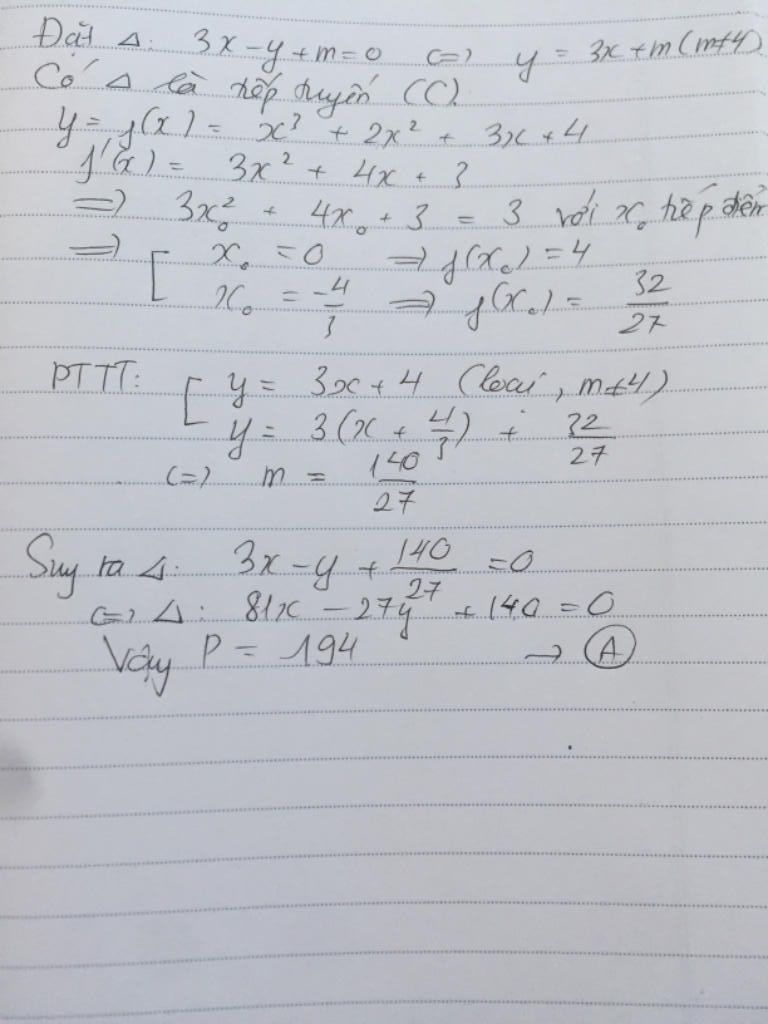 Đặt Δ: 3x - y + m = 0 <=> y = 3x + m (m≠4)
Có Δ là tiếp tuyến (C).
y = f(x) = x³ + 2x² + 3x + 4
f'(x) = 3x² + 4x + 3
=> 3x₀² + 4x₀ + 3 = 3 với x₀ tiếp điểm
=> [ x₀ = 0 => f(x₀) = 4
x₀ = -4/3 => f(x₀) = 32/27
PTTT: [ y = 3x + 4 (loại, m≠4)
y = 3(x + 4/3) + 32/27
<=> m = 140/27
Suy ra Δ: 3x - y + 140/27 = 0
<=> Δ: 81x - 27y + 140 = 0
Vậy P = 194 → Ⓐ